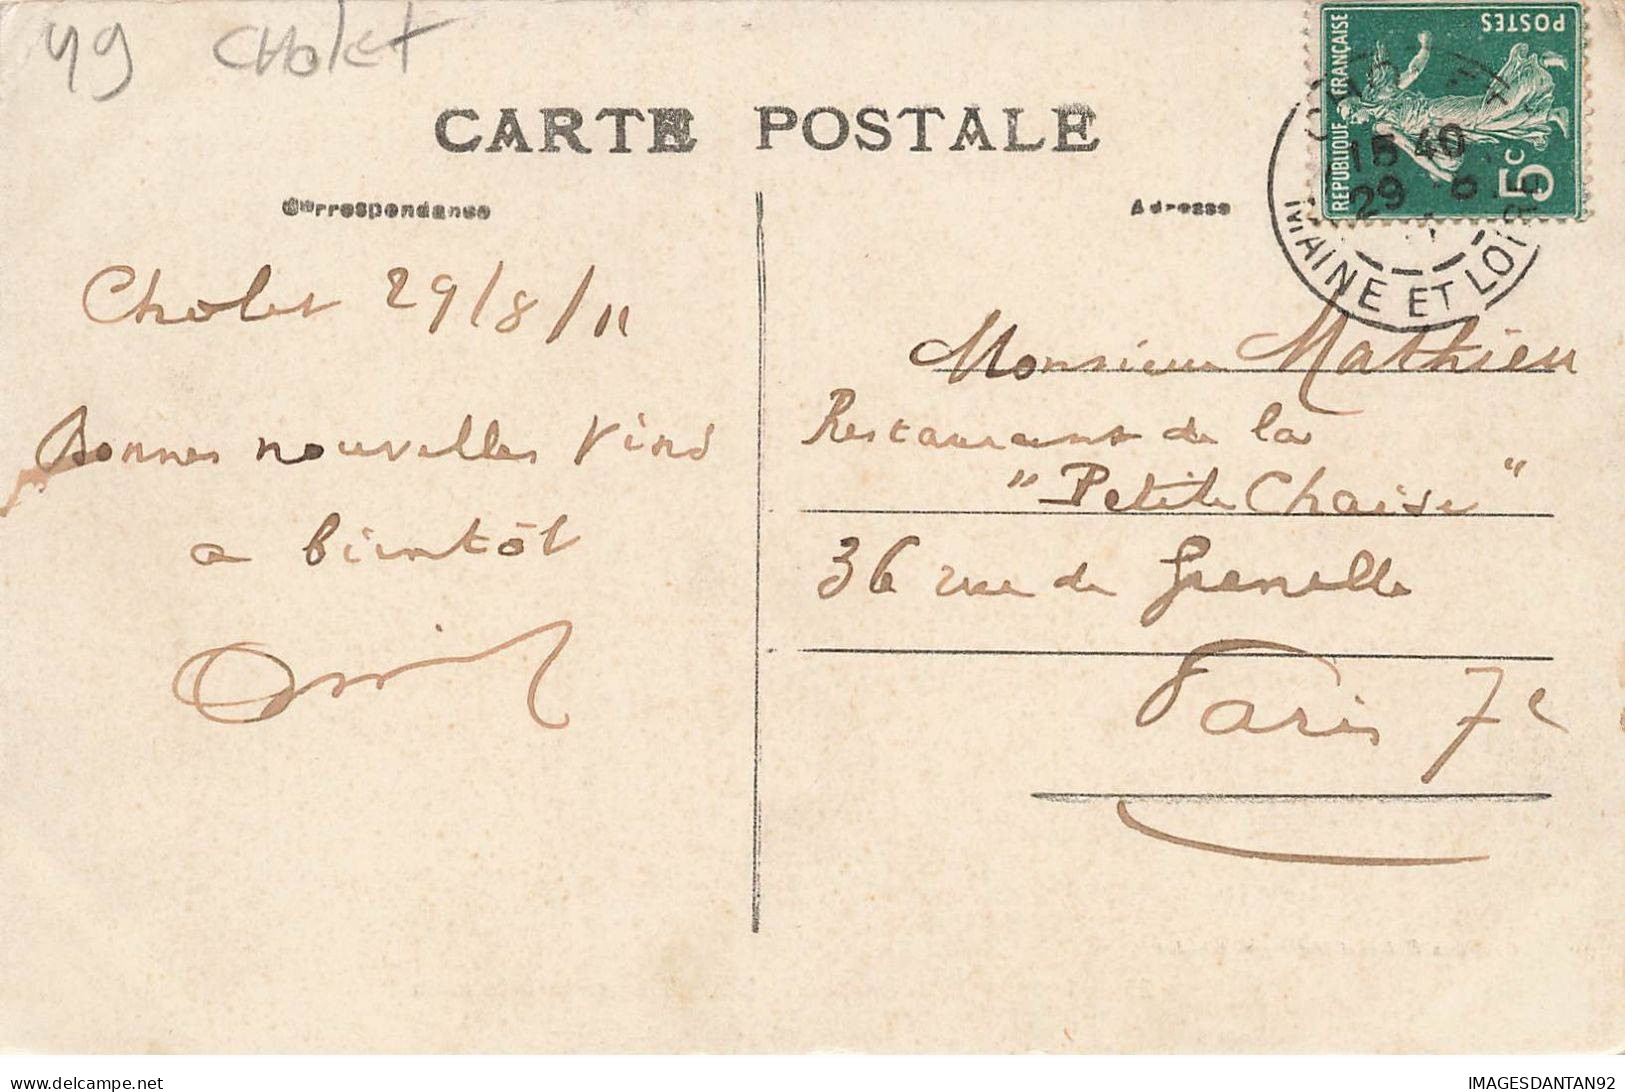 49 CHOLET
CARTE POSTALE
Correspondance
Adresse
POSTES
REPUBLIQUE FRANÇAISE
5c
15 40
29 8
MAINE ET LOIRE
Cholet 29/8/11
Bonnes nouvelles
a bientôt
Monsieur Mathieu
Restaurant de la
"Petite Chaise"
36 rue de Grenelle
Paris 7e
IMAGESDANTAN92
delcampe.net